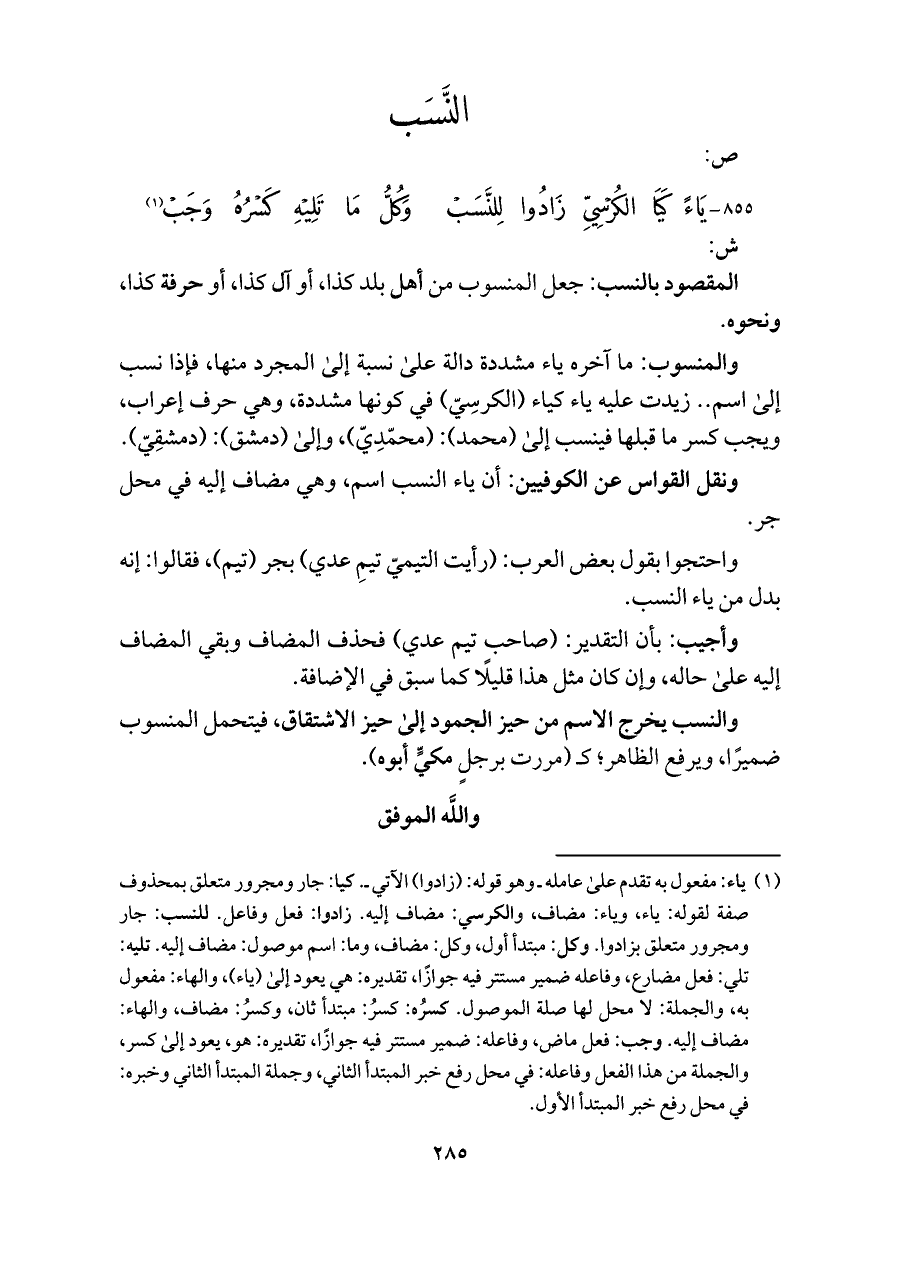 النَّسَب
ص:
٨٥٥-يَاءً كَيَا الكُرْسِيِّ زَادُوا لِلنَّسَبْ وَكُلُّ مَا تَلِيْهِ كَسْرُهُ وَجَبْ(١)
ش:
المقصود بالنسب: جعل المنسوب من أهل بلد كذا، أو آل كذا، أو حرفة كذا،
ونحوه.
والمنسوب: ما آخره ياء مشددة دالة علىٰ نسبة إلىٰ المجرد منها، فإذا نسب
إلىٰ اسم.. زيدت عليه ياء كياء (الكرسِيّ) في كونها مشددة، وهي حرف إعراب،
ويجب كسر ما قبلها فينسب إلىٰ (محمد): (محمّدِيّ)، وإلىٰ (دمشق): (دمشقِيّ).
ونقل القواس عن الكوفيين: أن ياء النسب اسم، وهي مضاف إليه في محل
جر.
واحتجوا بقول بعض العرب: (رأيت التيميّ تيمِ عدي) بجر (تيم)، فقالوا: إنه
بدل من ياء النسب.
وأجيب: بأن التقدير: (صاحب تيم عدي) فحذف المضاف وبقي المضاف
إليه علىٰ حاله، وإن كان مثل هذا قليلًا كما سبق في الإضافة.
والنسب يخرج الاسم من حيز الجمود إلىٰ حيز الاشتقاق، فيتحمل المنسوب
ضميرًا، ويرفع الظاهر؛ كـ (مررت برجلٍ مكيٍّ أبوه).
واللَّه الموفق
(١) ياء: مفعول به تقدم علىٰ عامله ـ وهو قوله: (زادوا) الآتي ـ. كيا: جار ومجرور متعلق بمحذوف
صفة لقوله: ياء، وياء: مضاف، والكرسي: مضاف إليه. زادوا: فعل وفاعل. للنسب: جار
ومجرور متعلق بزادوا. وكل: مبتدأ أول، وكل: مضاف، وما: اسم موصول: مضاف إليه. تليه:
تلي: فعل مضارع، وفاعله ضمير مستتر فيه جوازًا، تقديره: هي يعود إلىٰ (ياء)، والهاء: مفعول
به، والجملة: لا محل لها صلة الموصول. كسرُه: كسرُ: مبتدأ ثان، وكسرُ: مضاف، والهاء:
مضاف إليه. وجب: فعل ماض، وفاعله: ضمير مستتر فيه جوازًا، تقديره: هو، يعود إلىٰ كسر،
والجملة من هذا الفعل وفاعله: في محل رفع خبر المبتدأ الثاني، وجملة المبتدأ الثاني وخبره:
في محل رفع خبر المبتدأ الأول.
٢٨٥